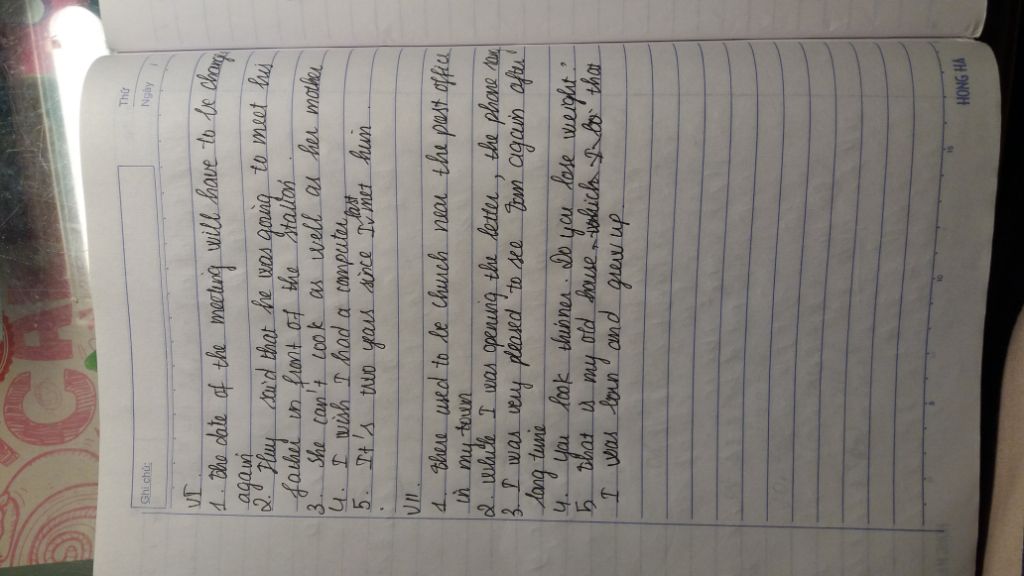 Thứ
Ngày
Ghi chú:
VI.
1. the date of the meeting will have to be chang
again
2. They said that he was going to meet his
father in front of the station
3. she can't cook as well as her mother
4. I wish I had a computer
5. It's two years since I last met him
VII.
1. there used to be church near the post office
in my town
2. while I was opening the letter, the phone ran
3. I was very pleased to see Tom again after
long time
4. you look thinner. Do you lose weight?
5. that is my old house which I that
I was born and grew up
5
10
15
HONG HA